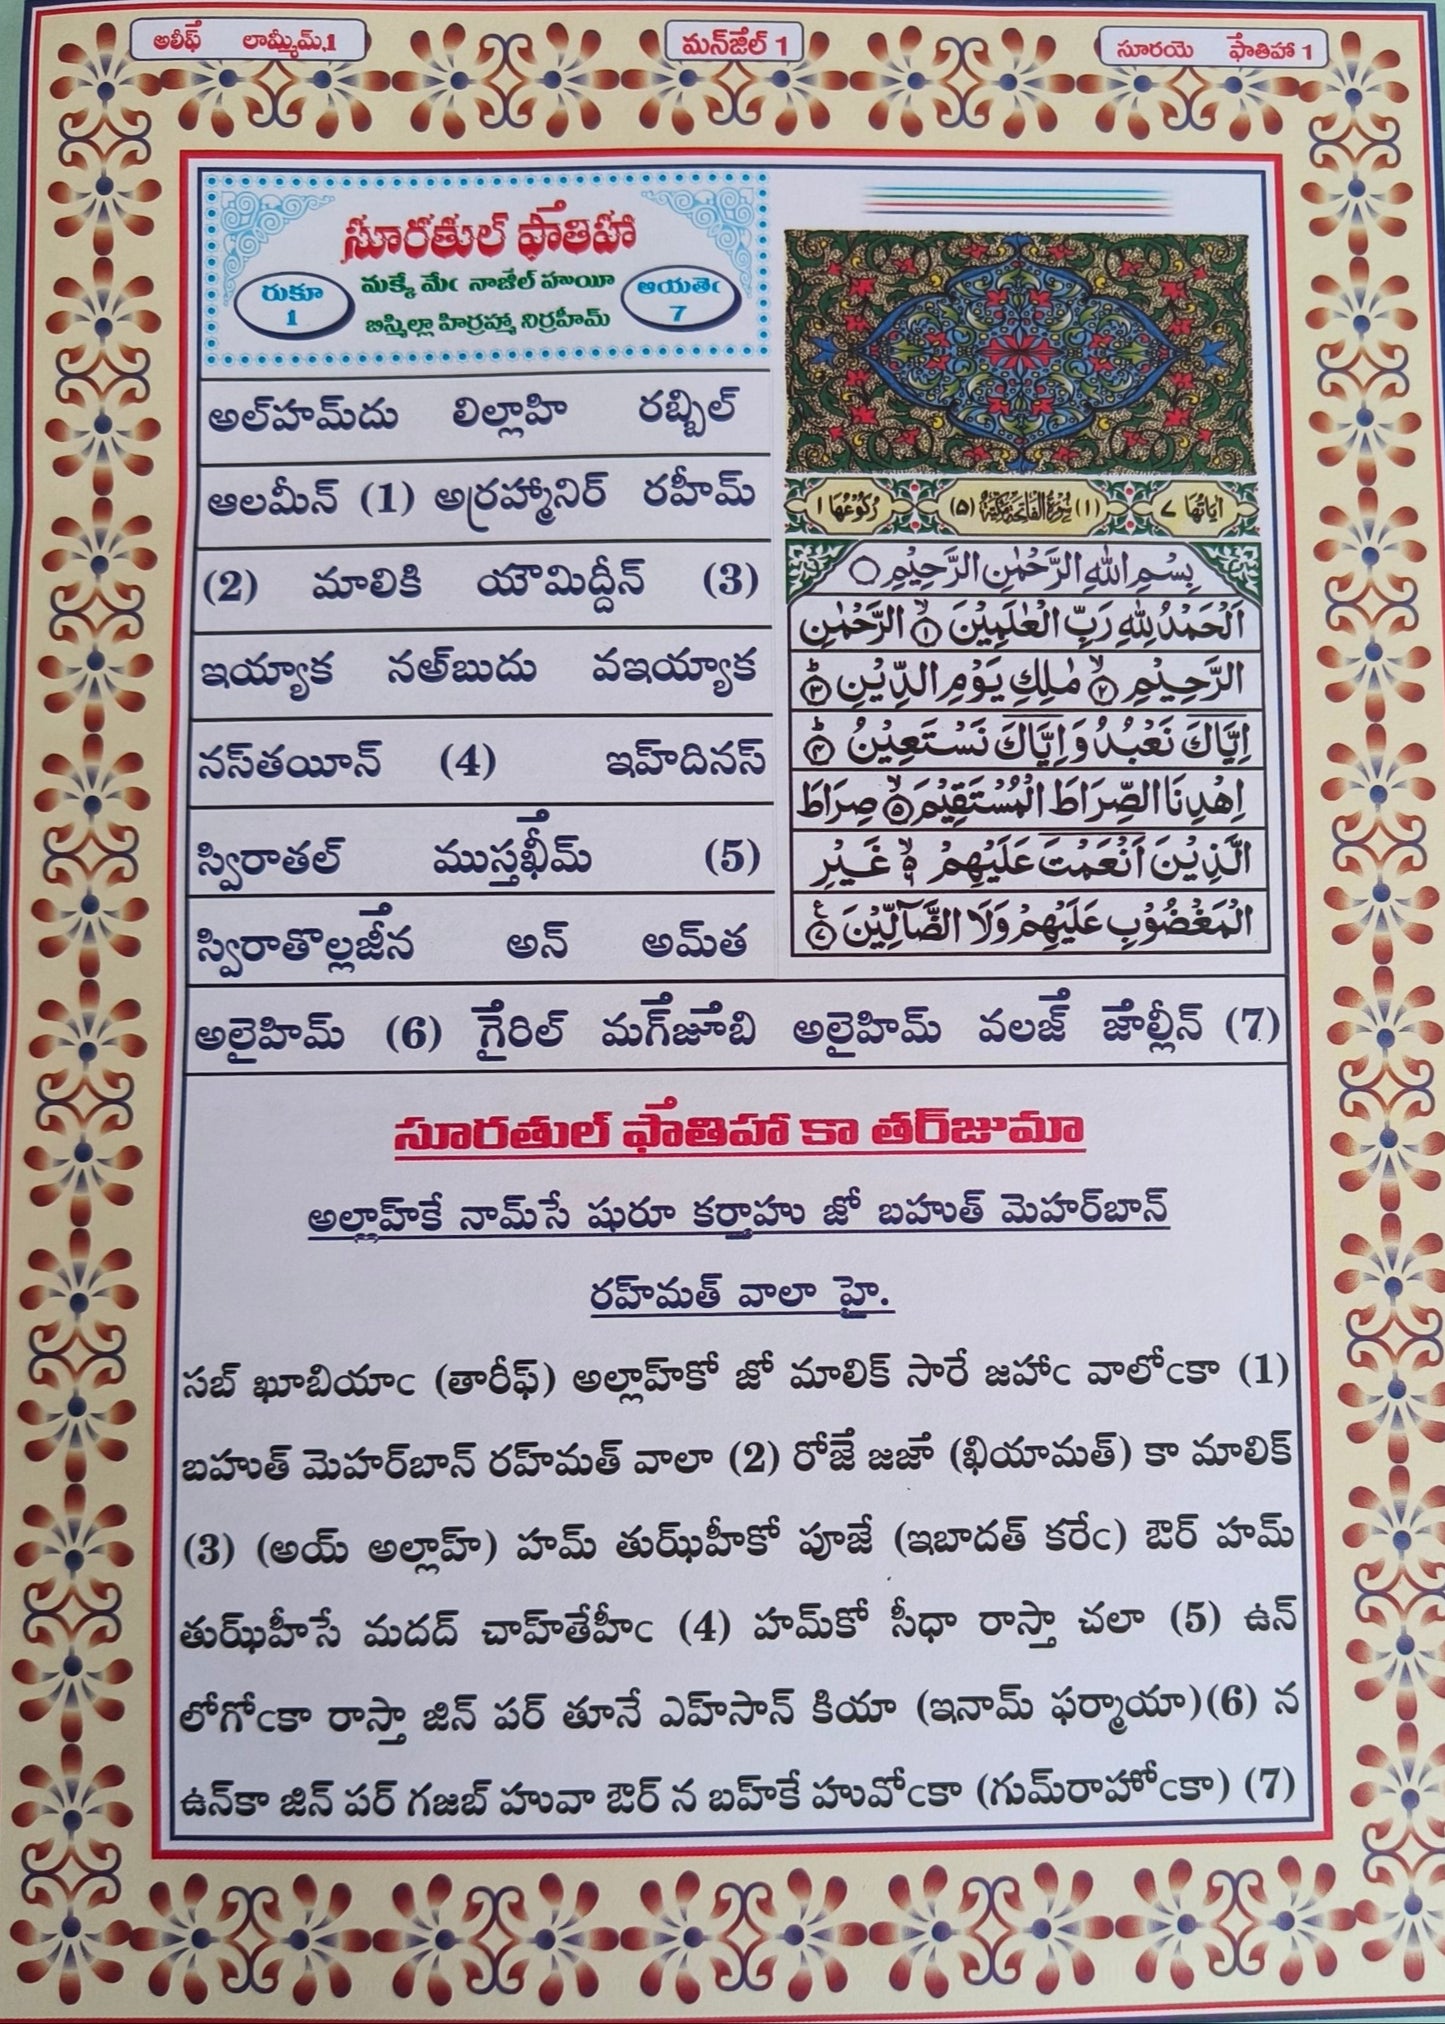 అలీఫ్ లామ్మీమ్.1
మన్‌జిల్ 1
సూరయె ఫాతిహా 1
సూరతుల్ ఫాతిహా
రుకూ 1
మక్కే మేఁ నాజిల్ హుయీ
ఆయతెఁ 7
బిస్మిల్లా హిర్రహ్మా నిర్రహీమ్
అల్‌హమ్‌దు లిల్లాహి రబ్బిల్
ఆలమీన్ (1) అర్రహ్మానిర్ రహీమ్
(2) మాలికి యౌమిద్దీన్ (3)
ఇయ్యాక నఅ్‌బుదు వఇయ్యాక
నస్‌తయీన్ (4) ఇహ్‌దినస్
స్విరాతల్ ముస్తఖీమ్ (5)
స్విరాతొల్లజీన అన్ అమ్‌త
అలైహిమ్ (6) గైరిల్ మగ్‌జూబి అలైహిమ్ వలజ్ జాల్లీన్ (7)
اٰيَاتُهَا ٧ (١) سُوْرَةُ الْفَاتِحَةِ مَكِّيَّةٌ (٥) رُكُوْعُهَا ١
بِسْمِ اللهِ الرَّحْمٰنِ الرَّحِيْمِ ○
اَلْحَمْدُ لِلّٰهِ رَبِّ الْعٰلَمِيْنَ ۙ﴿١﴾ الرَّحْمٰنِ
الرَّحِيْمِ ۙ﴿٢﴾ مٰلِكِ يَوْمِ الدِّيْنِ ؕ﴿٣﴾
اِيَّاكَ نَعْبُدُ وَاِيَّاكَ نَسْتَعِيْنُ ؕ﴿٤﴾
اِهْدِنَا الصِّرَاطَ الْمُسْتَقِيْمَ ۙ﴿٥﴾ صِرَاطَ
الَّذِيْنَ اَنْعَمْتَ عَلَيْهِمْ ۙ۬﴿٦﴾ غَيْرِ
الْمَغْضُوْبِ عَلَيْهِمْ وَلَا الضَّآلِّيْنَ ﴿٧﴾
సూరతుల్ ఫాతిహా కా తర్‌జుమా
అల్లాహ్‌కే నామ్‌సే షురూ కర్తాహు జో బహుత్ మెహర్‌బాన్
రహ్‌మత్ వాలా హై.
సబ్ ఖూబియాఁ (తారీఫ్) అల్లాహ్‌కో జో మాలిక్ సారే జహాఁ వాలోఁకా (1)
బహుత్ మెహర్‌బాన్ రహ్‌మత్ వాలా (2) రోజే జజా (ఖియామత్) కా మాలిక్
(3) (అయ్ అల్లాహ్) హమ్ తుఝ్‌హీకో పూజే (ఇబాదత్ కరేఁ) ఔర్ హమ్
తుఝ్‌హీసే మదద్ చాహ్‌తేహీఁ (4) హమ్‌కో సీధా రాస్తా చలా (5) ఉన్
లోగోఁకా రాస్తా జిన్ పర్ తూనే ఎహ్‌సాన్ కియా (ఇనామ్ ఫర్మాయా)(6) న
ఉన్‌కా జిన్ పర్ గజబ్ హువా ఔర్ న బహ్‌కే హువోఁకా (గుమ్‌రాహోఁకా) (7)